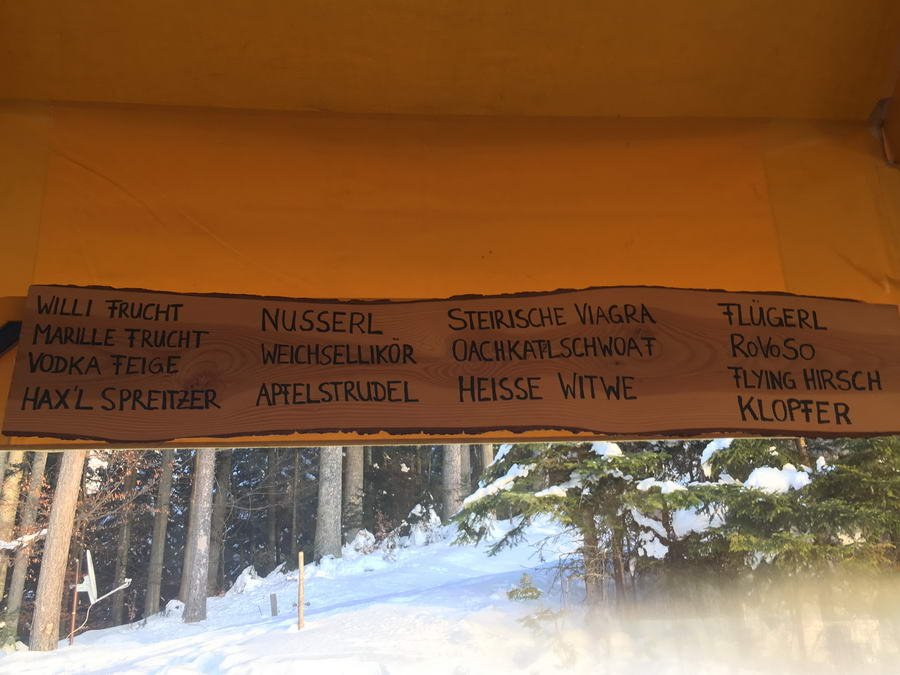 WILLI FRUCHT
MARILLE FRUCHT
VODKA FEIGE
HAX'L SPREITZER
NUSSERL
WEICHSELLIKÖR
APFELSTRUDEL
STEIRISCHE VIAGRA
OACHKATLSCHWOAF
HEISSE WITWE
FLÜGERL
ROVOSO
FLYING HIRSCH
KLOPFER